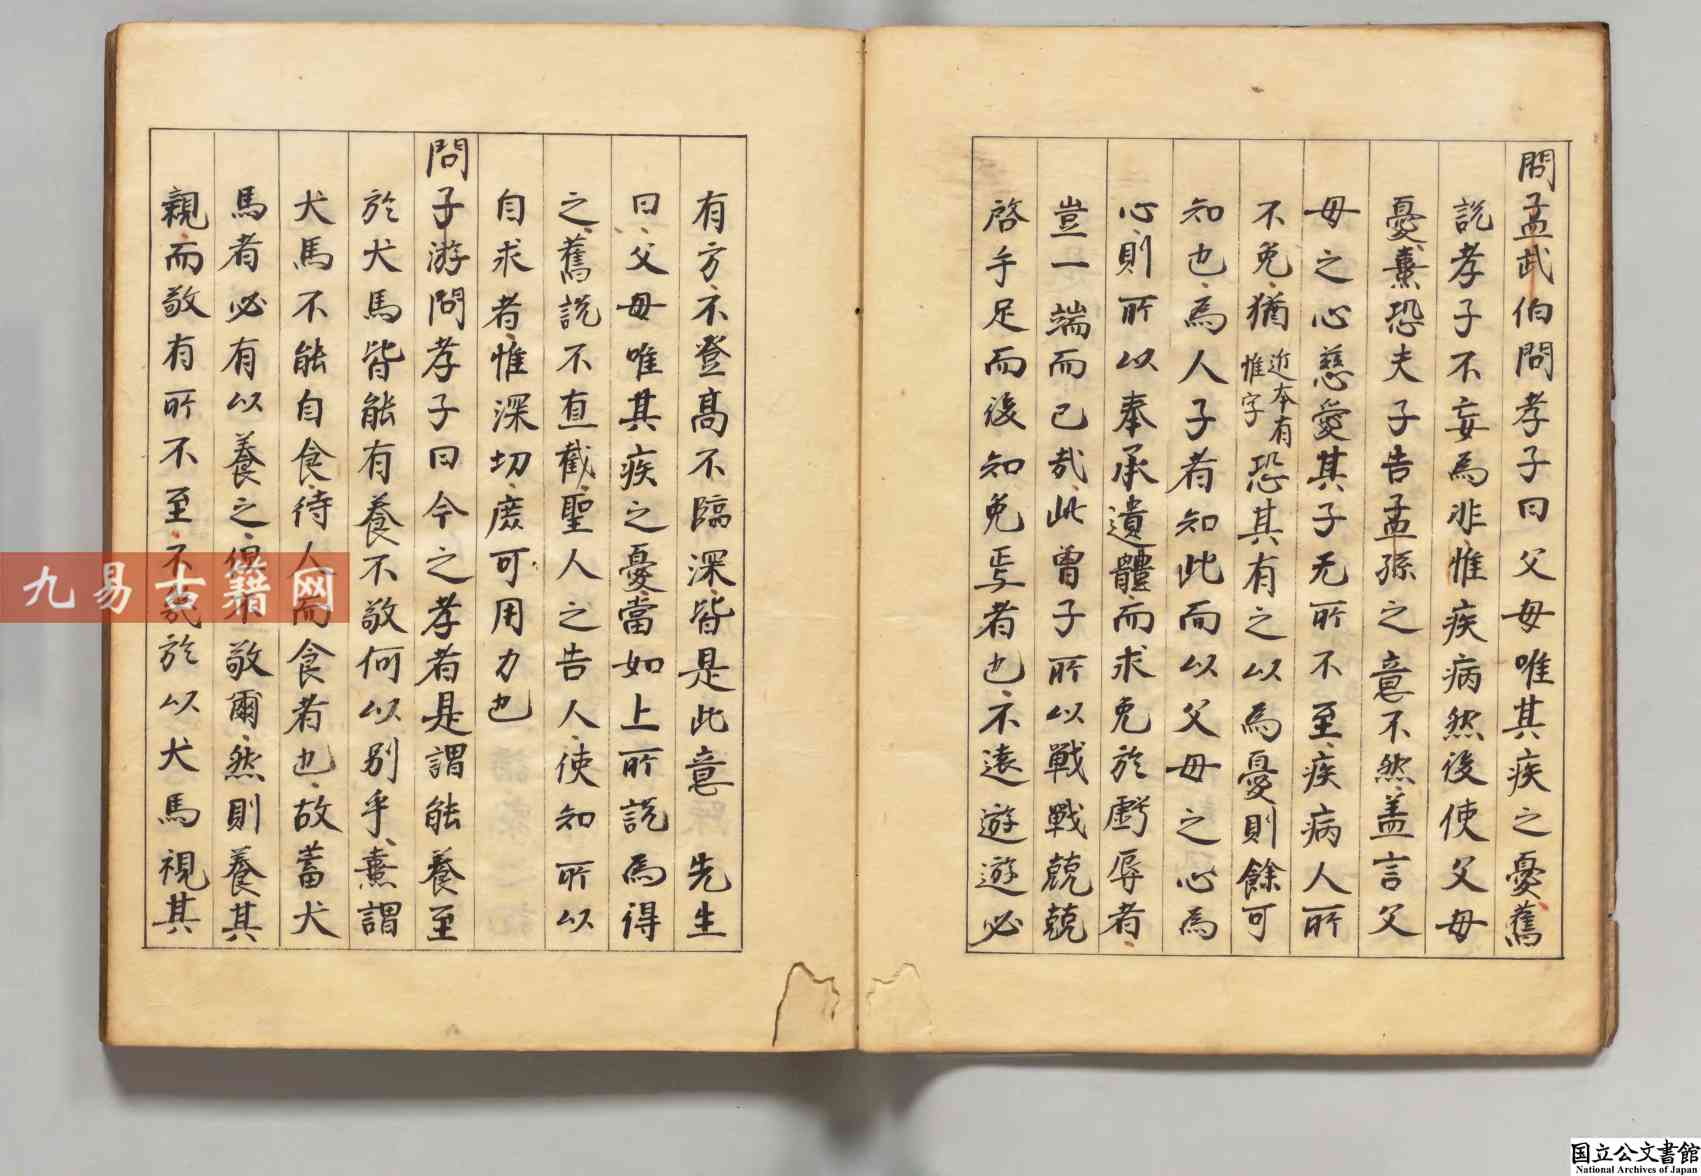 問孟武伯問孝子曰父母唯其疾之憂舊
説孝子不妄為非惟疾病然後使父母
憂熹恐夫子告孟孫之意不然盖言父
母之心慈愛其子无所不至疾病人所
不免猶近本有惟字恐其有之以為憂則餘可
知也為人子者知此而以父母之心為
心則所以奉承遺體而求免於虧辱者
豈一端而已哉此曾子所以戰戰兢兢
啓手足而後知免焉者也不遠遊遊必
有方不登髙不臨深皆是此意 先生
曰父母唯其疾之憂當如上所説為得
之舊説不直截聖人之告人使知所以
自求者惟深切庶可用力也
問子游問孝子曰今之孝者是謂能養至
於犬馬皆能有養不敬何以别乎熹謂
犬馬不能自食待人而食者也故蓄犬
馬者必有以養之不敬爾然則養其
親而敬有所不至不於以犬馬視其
九易古籍网
国立公文書館
National Archives of Japan